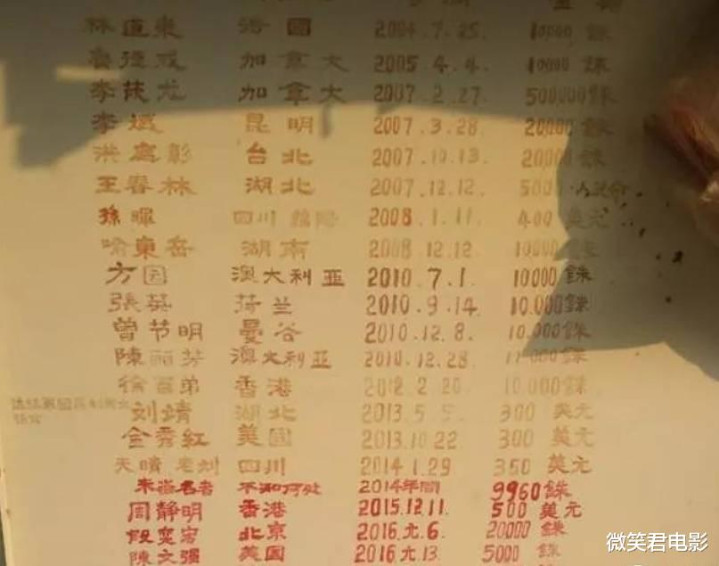 林道東 法國 2004.7.25. 10000 銖
加拿大 2005.4.4. 10000 銖
李茂尤 加拿大 2007.2.27. 500.00銖
李斌 昆明 2007.3.28. 20000 銖
洪嘉彰 台北 2007.10.13. 20000 銖
王春林 湖北 2007.12.12. 5000 人民币
孫暉 四川 綿陽 2008.1.11. 400 美元
喻東岳 湖南 2008.12.12. 10000
方园 澳大利亚 2010.7.1. 10000 銖
張英 荷兰 2010.9.14. 10.000銖
曾节明 曼谷 2010.12.8. 10.000 銖
陳丽芳 澳大利亚 2010.12.28 銖
徐 弟 香港 2012.2.20. 10.000 銖
刘靖 湖北 2013.5.5. 300 美元
金秀紅 美國 2013.10 22 300 美元
天晴 老刘 四川 2014.1.29 350 美元
未签名者 不知何处 2014年間 9960銖
周靜明 香港 2015.12.11. 500 美元
北京 2016.元.6. 20000 銖
陳文强 美国 2016.元.13. 5000 銖
微笑君电影